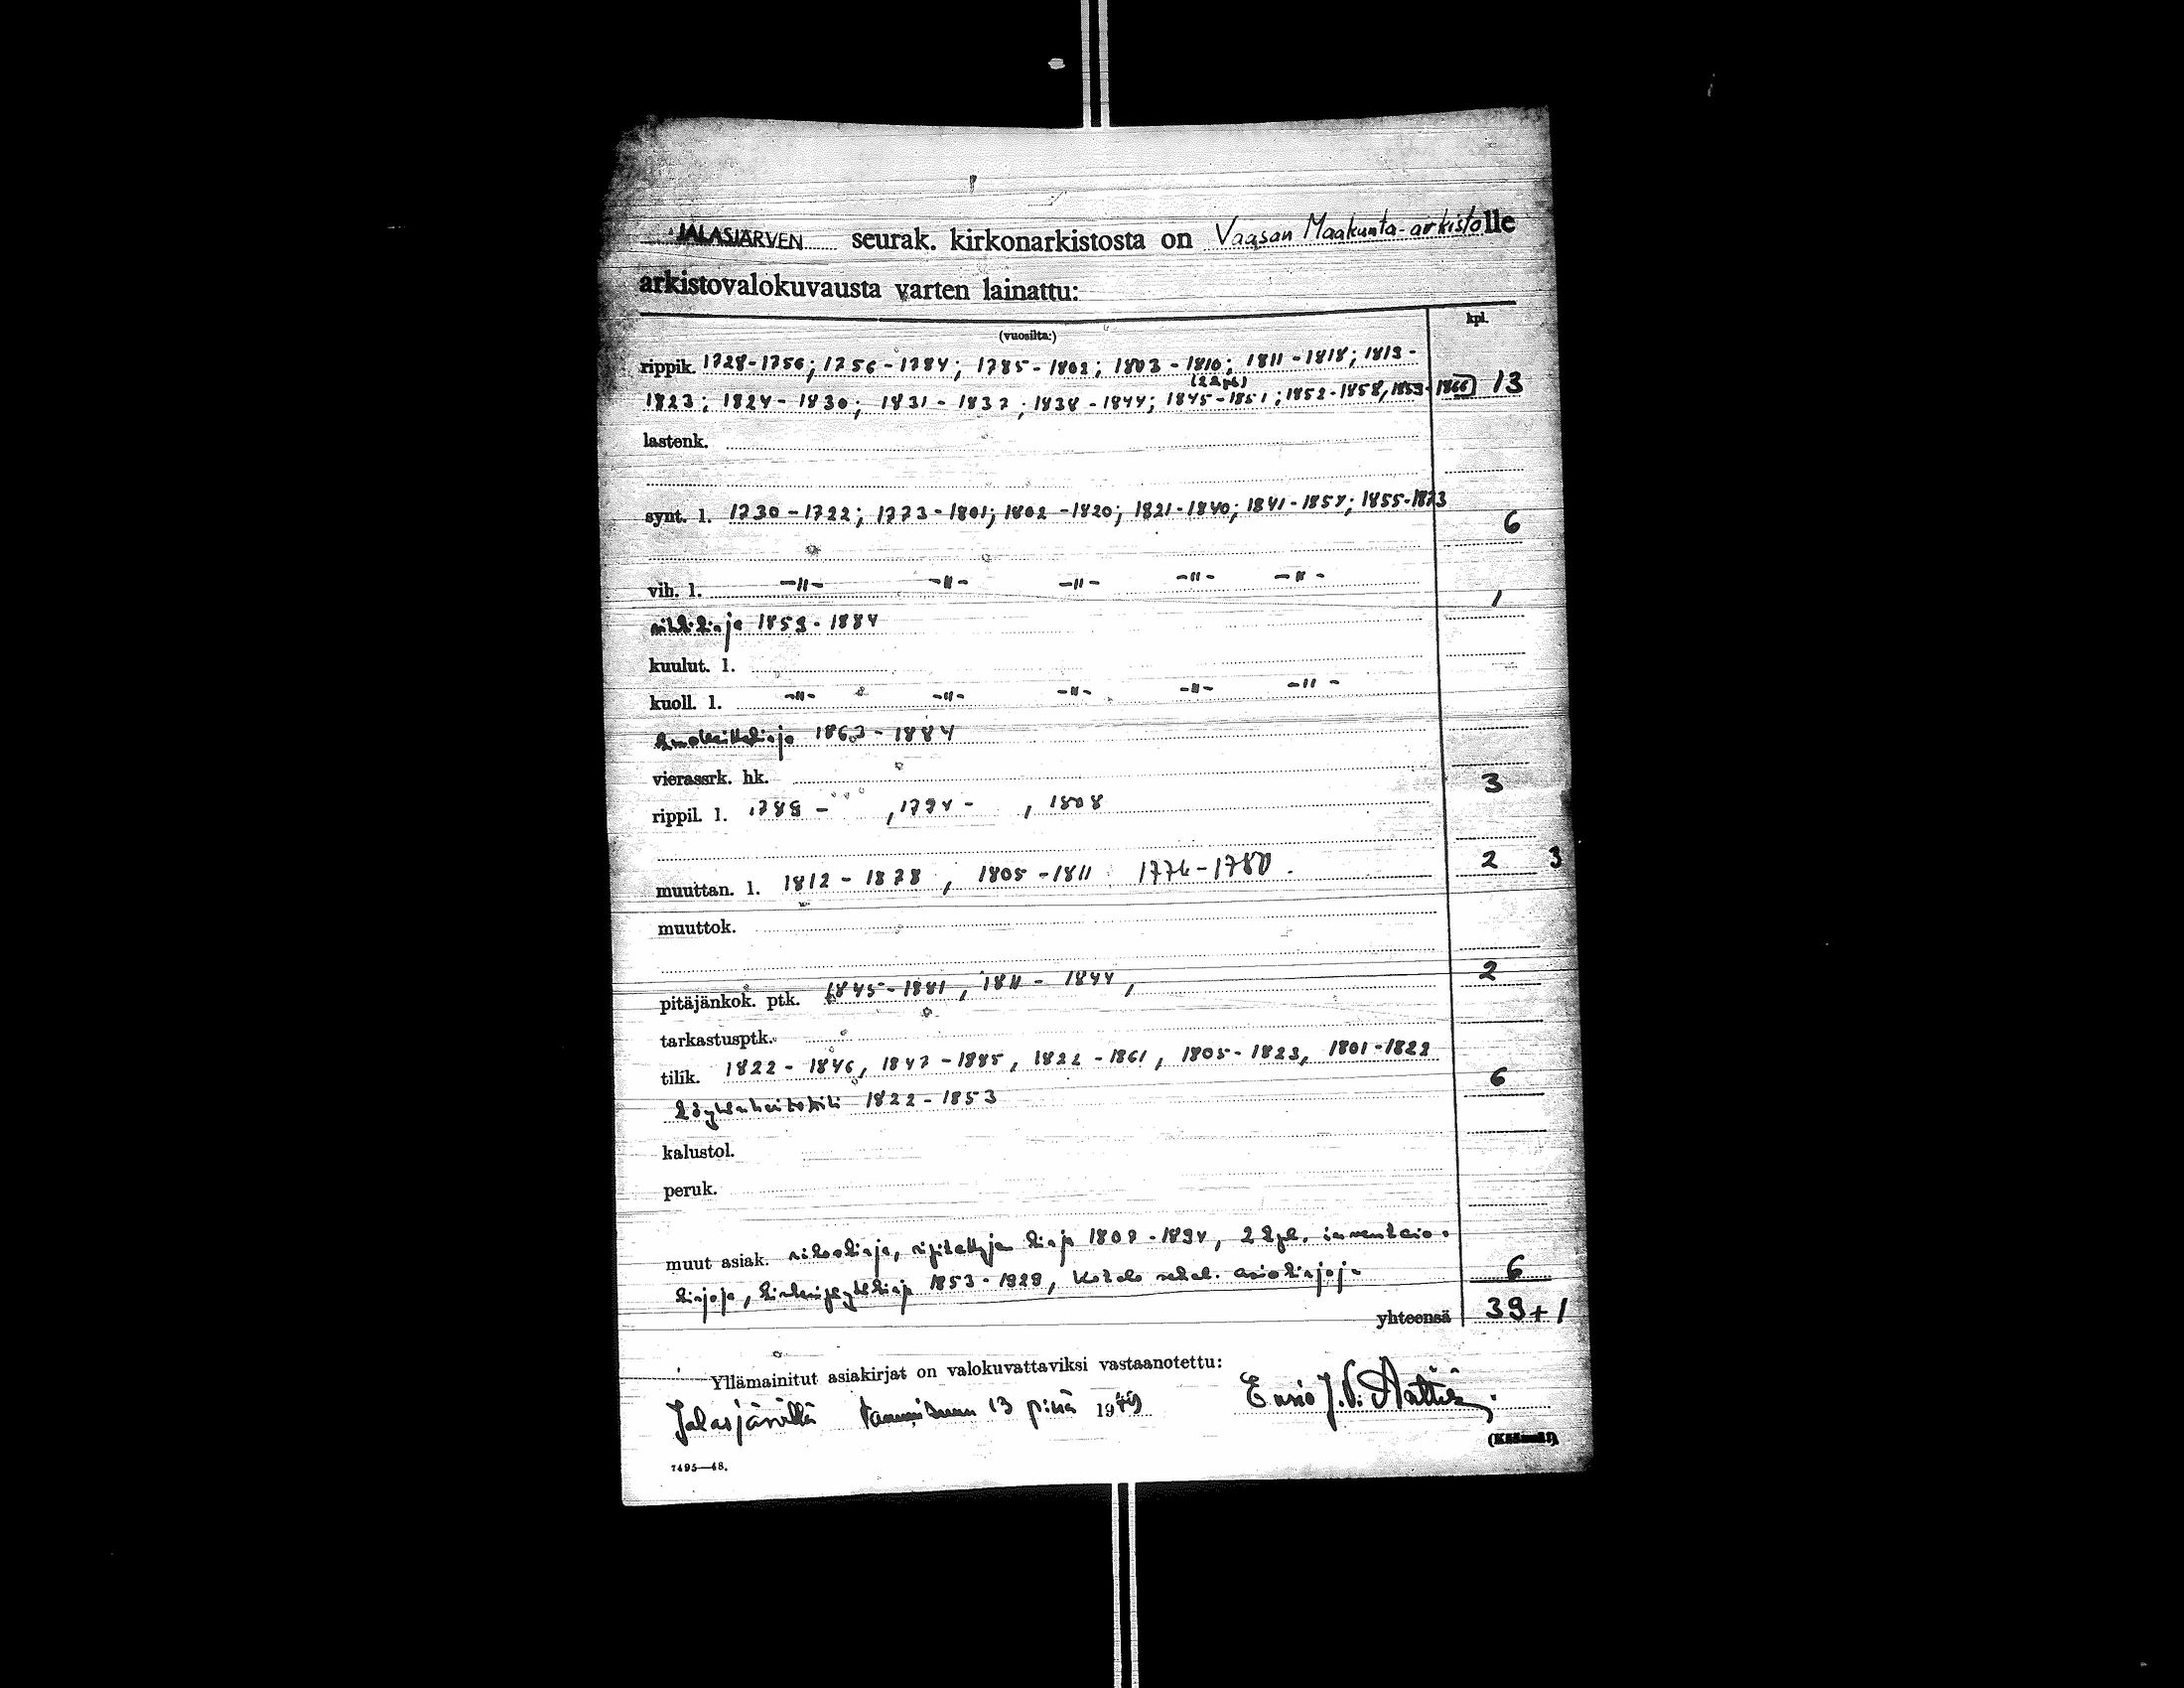 JALASJÄRVEN seurak. kirkonarkistosta on Vaasan Maakunta-arkistolle
arkistovalokuvausta varten lainattu:
(vuosilta:) kpl.
rippik. 1728-1756; 1756-1784; 1785-1802; 1803-1810; 1811-1818; 1819-
(2 kpl)
1823; 1824-1830; 1831-1837; 1838-1844; 1845-1851; 1852-1858, 1859-1866 13
lastenk.
synt. l. 1730-1722; 1773-1801; 1802-1820; 1821-1840; 1841-1854; 1855-1873 6
vih. l. -"- -"- -"- -"- -"-
vihkikirja 1859-1884 1
kuulut. l.
kuoll. l. -"- -"- -"- -"- -"-
1863-1884
vierassrk. hk.
rippil. l. 1788 - , 1794 - , 1808 3
muuttan. l. 1812-1878, 1805-1811 1776-1780. 2 3
muuttok.
pitäjänkok. ptk. 1845-1881, 1811-1844, 2
tarkastusptk.
tilik. 1822-1846, 1847-1885, 1822-1861, 1805-1823, 1801-1822
1822-1853 6
kalustol.
peruk.
muut asiak. ripitettyjen kirja 1808-1894, 2 kpl. inventaio-
kirjoja, 1853-1929, asiakirjoja 6
yhteensä 39+1
Yllämainitut asiakirjat on valokuvattaviksi vastaanotettu:
Jalasjärvellä Tammikuun 13 p:nä 1949 Ensio J.
7495—48.